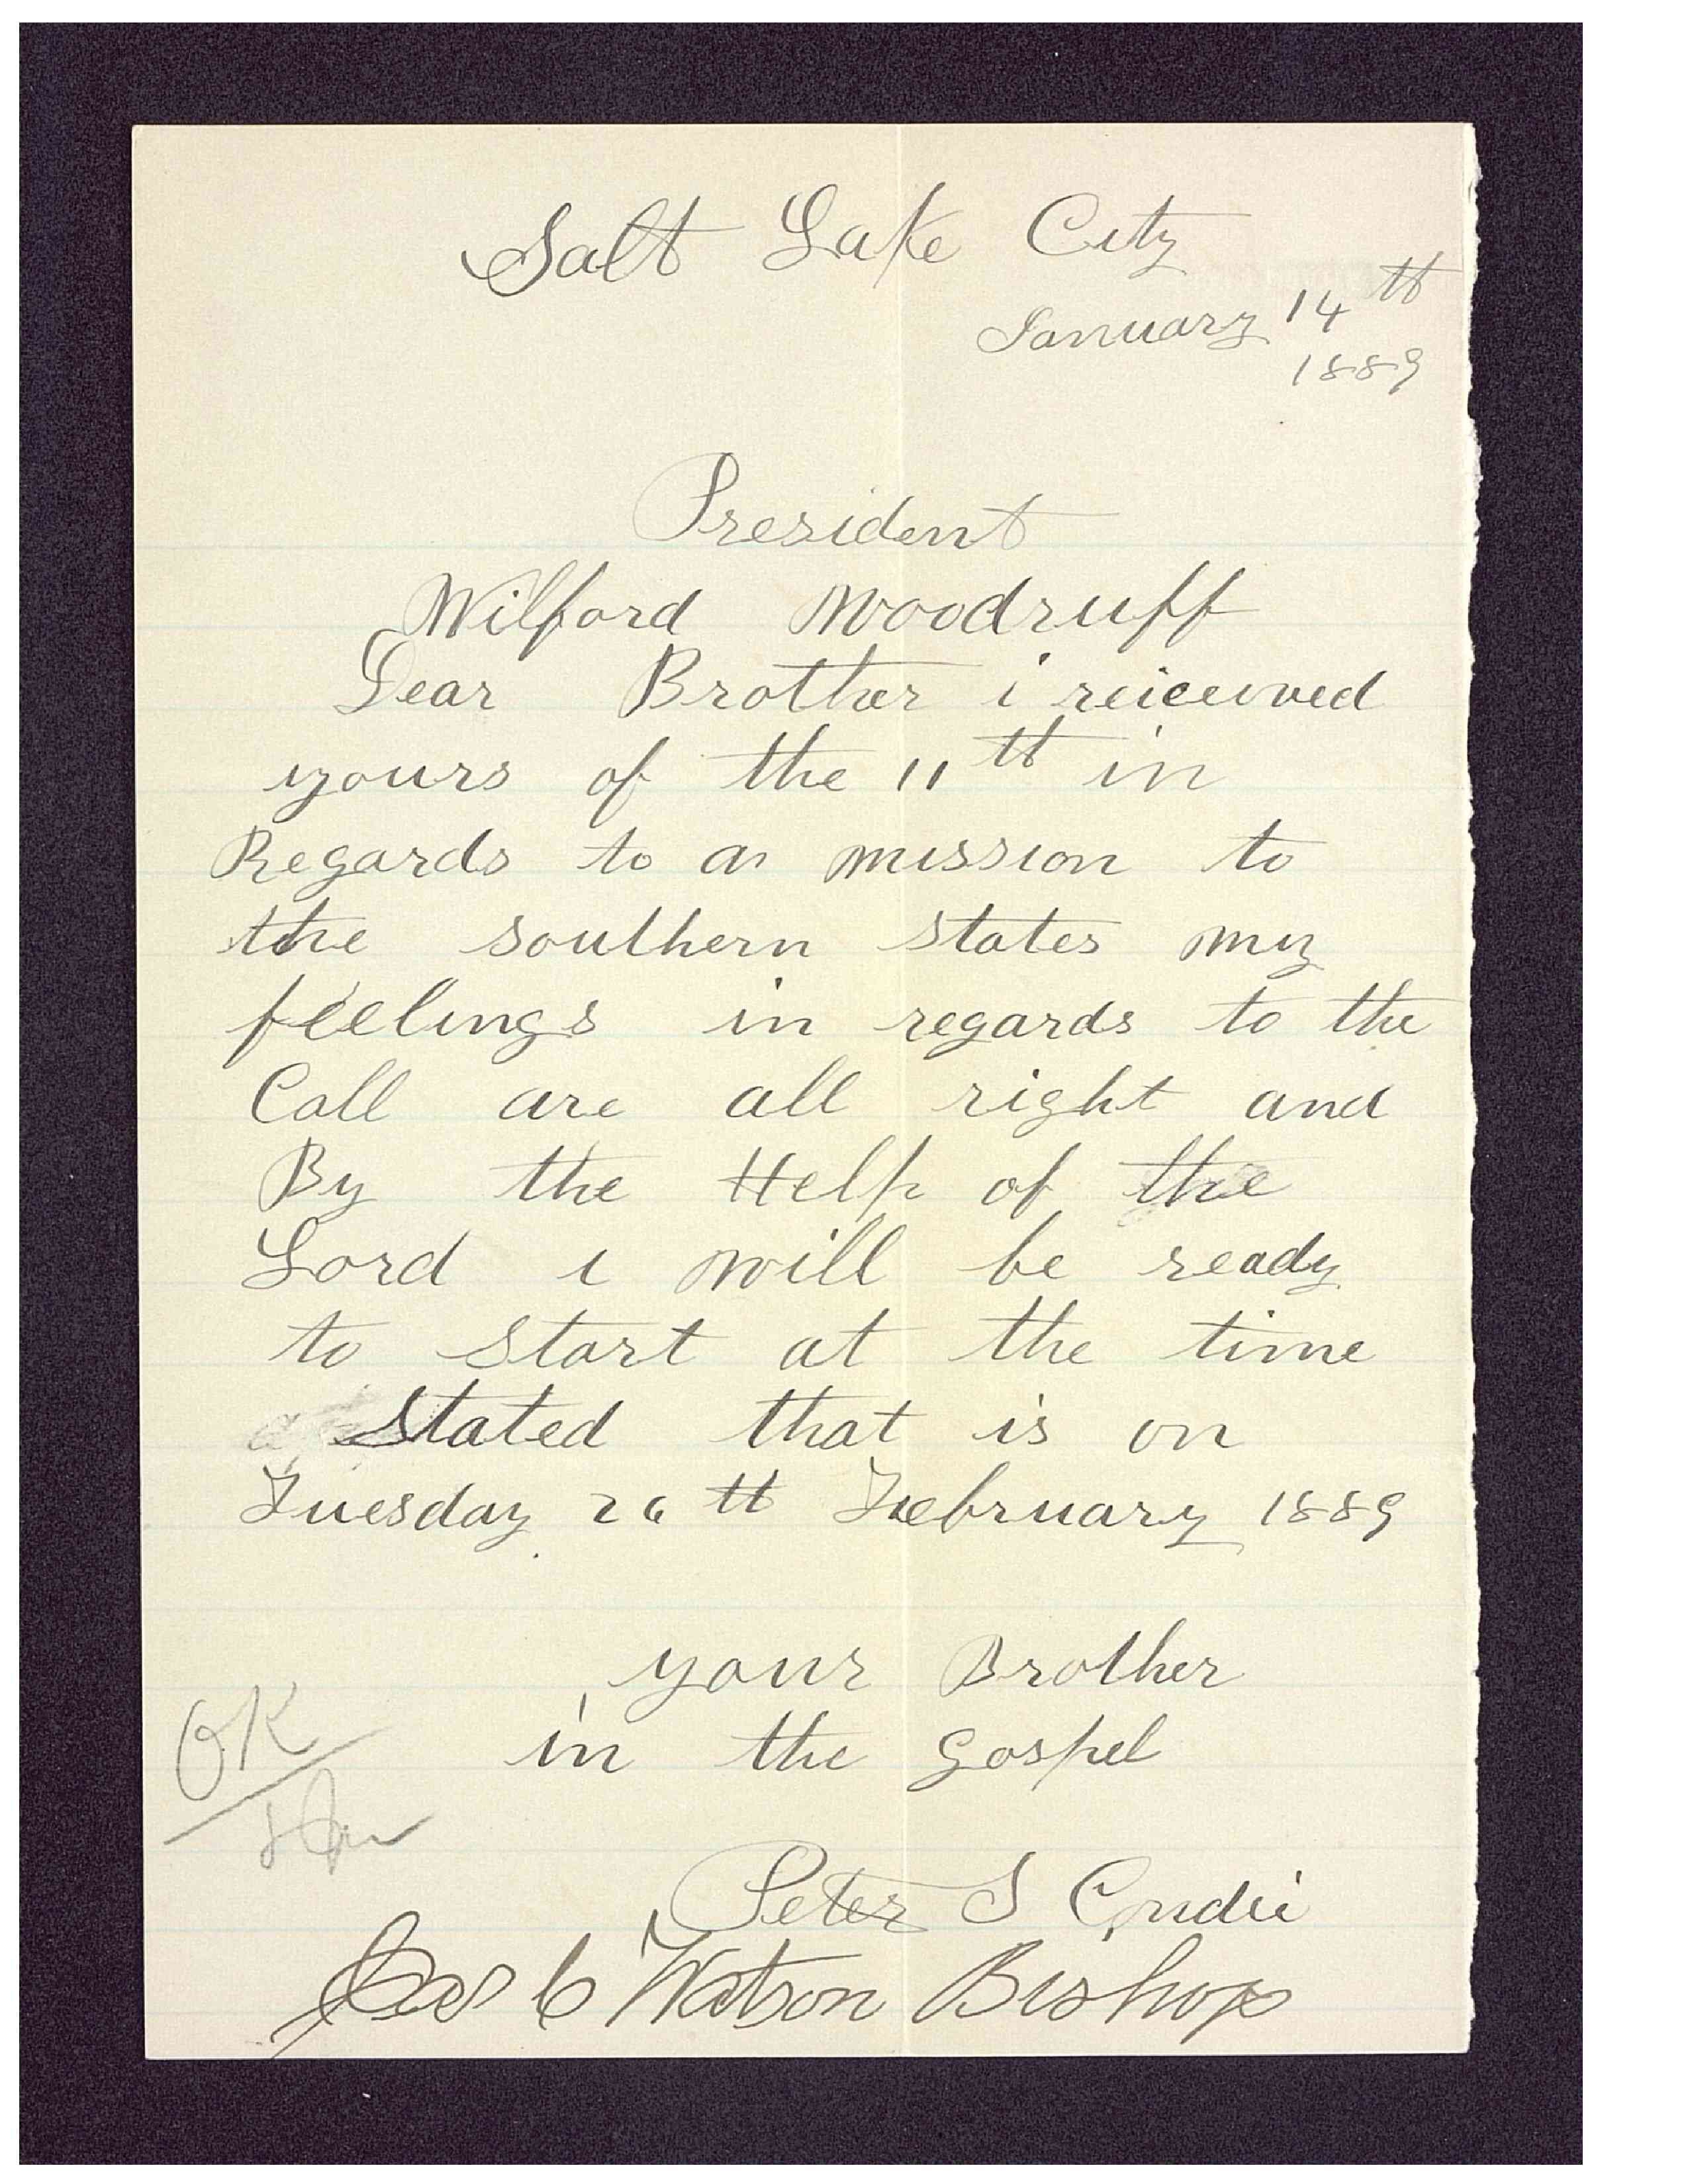 Salt Lake City
January 14th
1889
President
Wilford Woodruff
Dear Brother i reiceived
yours of the 11th in
Regards to a mission to
the southern states my
feelings in regards to the
Call are all right and
By the Help of the
Lord i will be ready
to Start at the time
Stated that is on
Tuesday 26th February 1889
your Brother
in the Gospel
OK
Peter S Condie
Jas C Watson Bishop